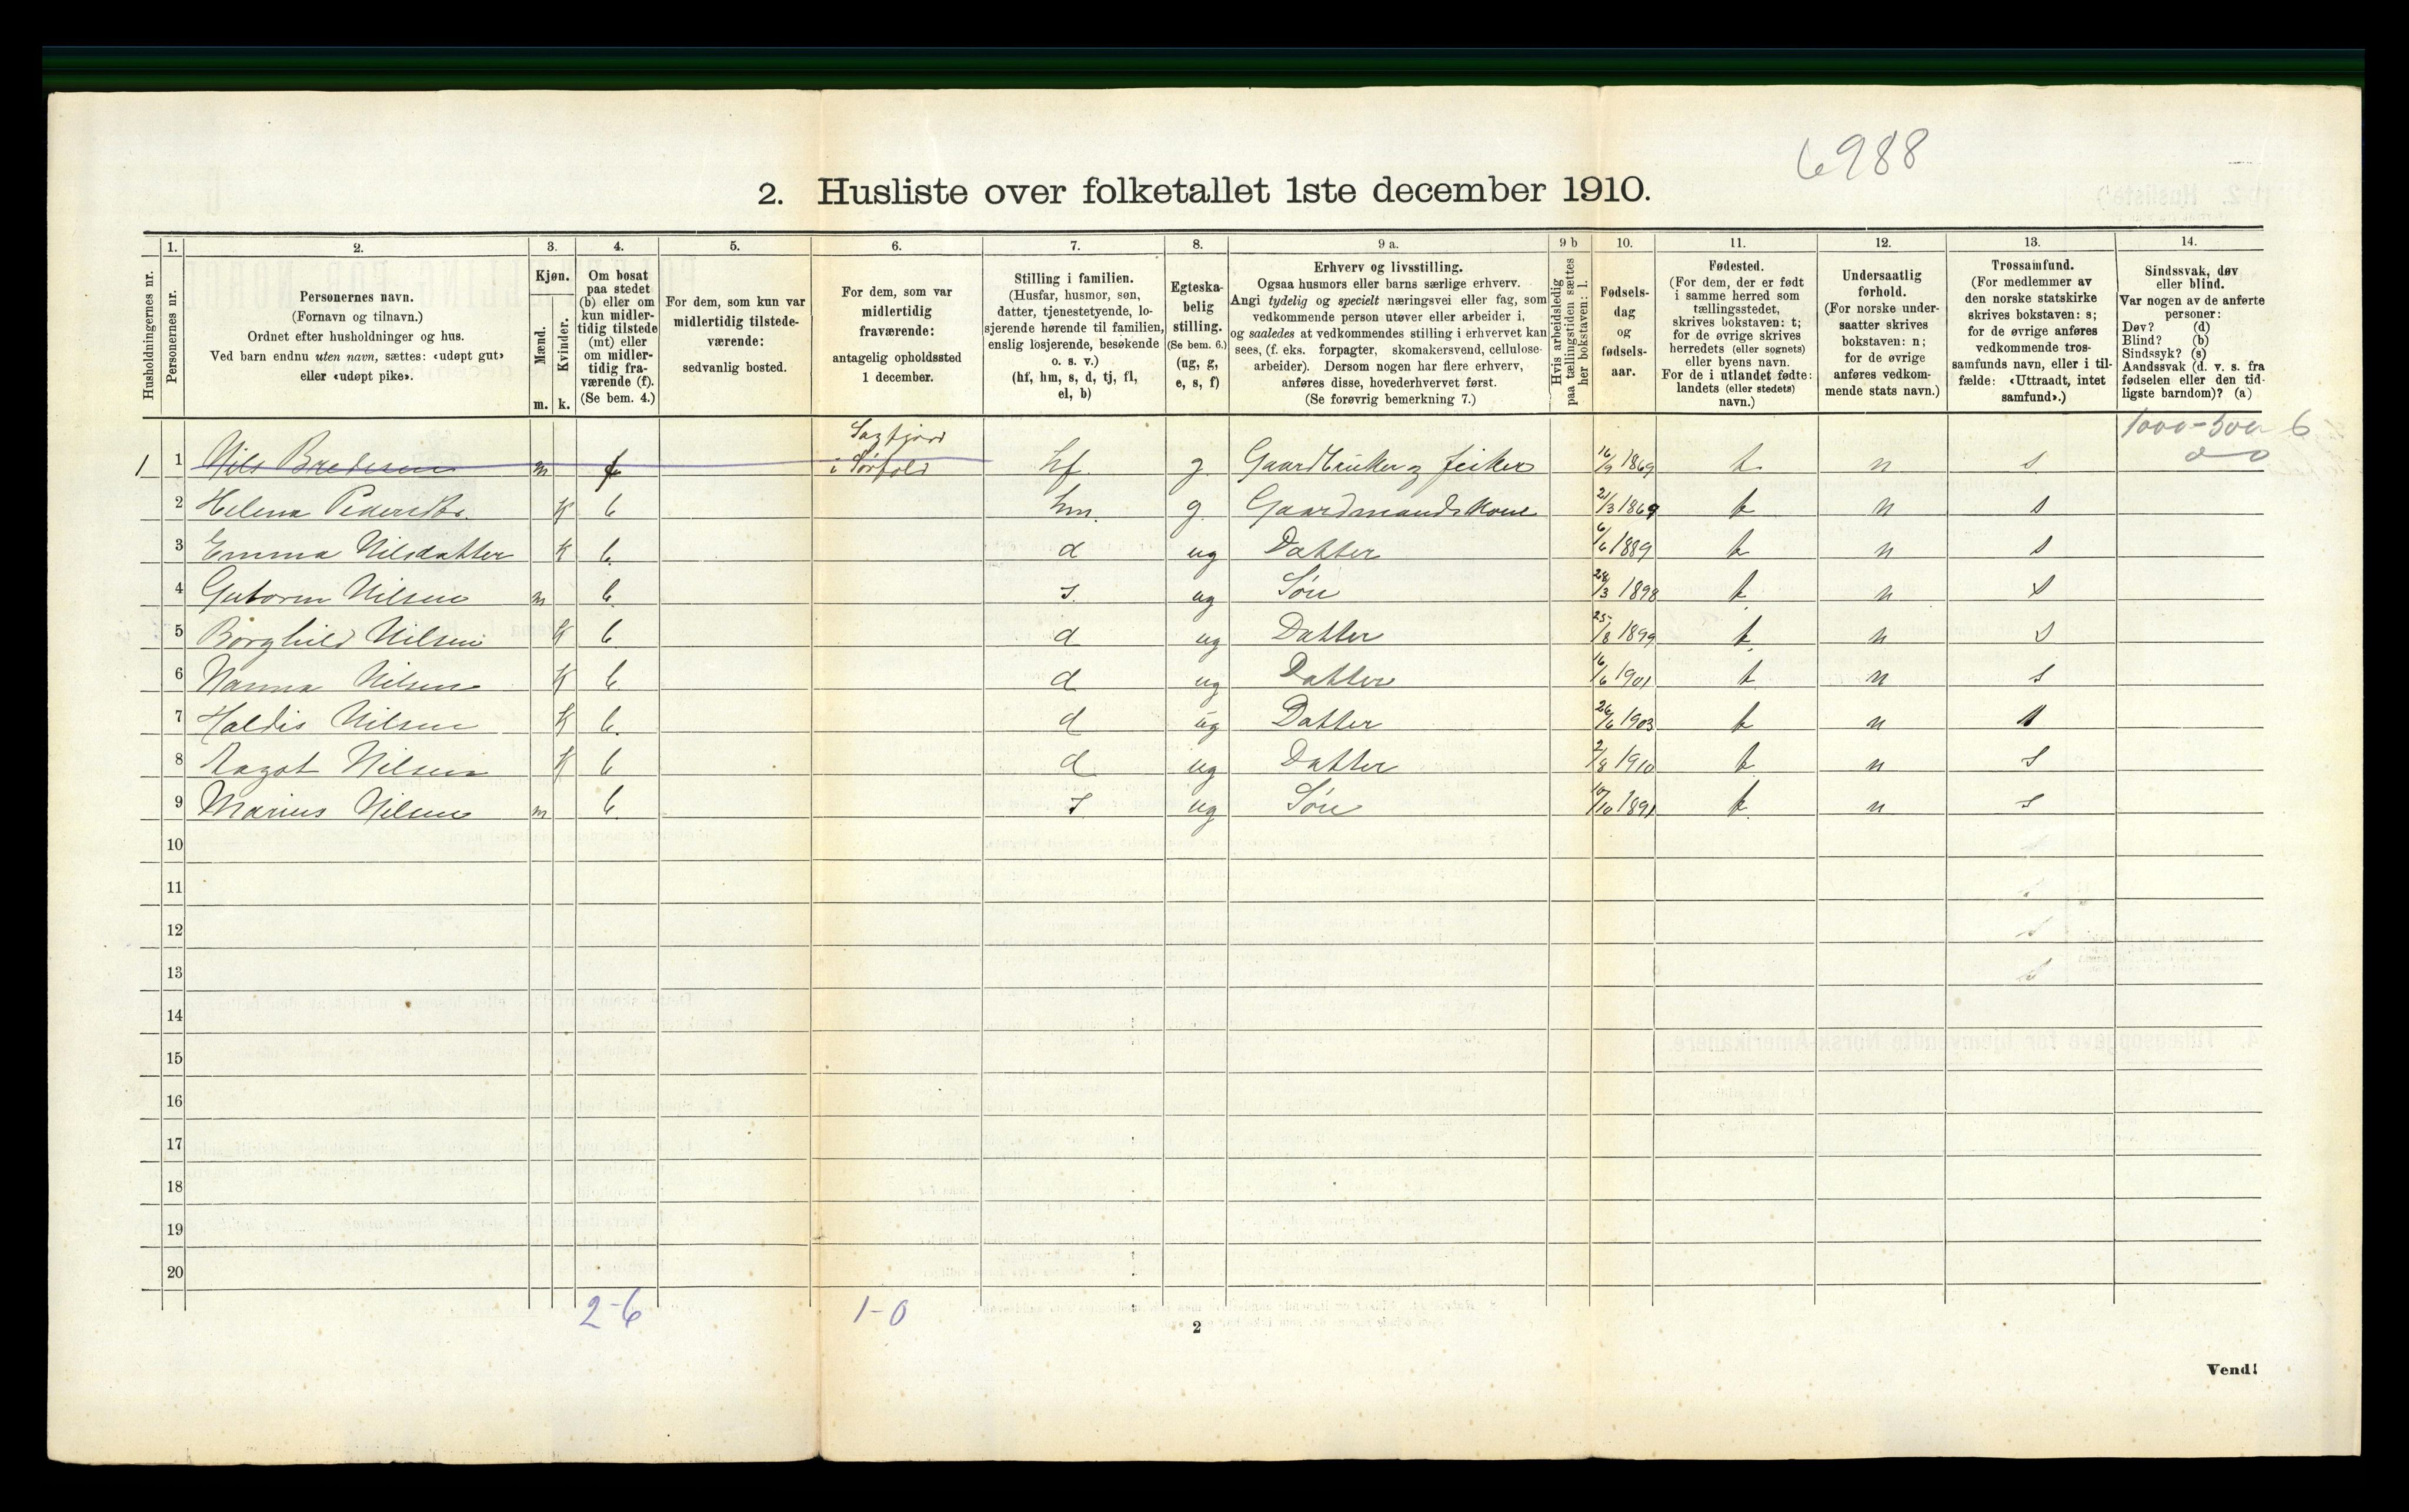 6988
2. Husliste over folketallet 1ste december 1910.
Husholdningernes nr.
1.
Personernes nr.
2.
Personernes navn.
(Fornavn og tilnavn.)
Ordnet efter husholdninger og hus.
Ved barn endnu uten navn, sættes: «udøpt gut»
eller «udøpt pike».
3.
Kjøn.
Mænd.
Kvinder.
m. k.
4.
Om bosat
paa stedet
(b) eller om
kun midler-
tidig tilstede
(mt) eller
om midler-
tidig fra-
værende (f).
(Se bem. 4.)
5.
For dem, som kun var
midlertidig tilstede-
værende:
sedvanlig bosted.
6.
For dem, som var
midlertidig
fraværende:
antagelig opholdssted
1 december.
7.
Stilling i familien.
(Husfar, husmor, søn,
datter, tjenestetyende, lo-
sjerende hørende til familien,
enslig losjerende, besøkende
o. s. v.)
(hf, hm, s, d, tj, fl,
el, b)
8.
Egteska-
belig
stilling.
(Se bem. 6.)
(ug, g,
e, s, f)
9 a.
Erhverv og livsstilling.
Ogsaa husmors eller barns særlige erhverv.
Angi tydelig og specielt næringsvei eller fag, som
vedkommende person utøver eller arbeider i,
og saaledes at vedkommendes stilling i erhvervet kan
sees, (f. eks. forpagter, skomakersvend, cellulose-
arbeider). Dersom nogen har flere erhverv,
anføres disse, hovederhvervet først.
(Se forøvrig bemerkning 7.)
9 b
Hvis arbeidsledig
paa tællingstiden sættes
her bokstaven: l.
10.
Fødsels-
dag
og
fødsels-
aar.
11.
Fødested.
(For dem, der er født
i samme herred som
tællingsstedet,
skrives bokstaven: t;
for de øvrige skrives
herredets (eller sognets)
eller byens navn.
For de i utlandet fødte:
landets (eller stedets)
navn.)
12.
Undersaatlig
forhold.
(For norske under-
saatter skrives
bokstaven: n;
for de øvrige
anføres vedkom-
mende stats navn.)
13.
Trossamfund.
(For medlemmer av
den norske statskirke
skrives bokstaven: s;
for de øvrige anføres
vedkommende tros-
samfunds navn, eller i til-
fælde: «Uttraadt, intet
samfund».)
14.
Sindssvak, døv
eller blind.
Var nogen av de anførte
personer:
Døv? (d)
Blind? (b)
Sindssyk? (s)
Aandssvak (d. v. s. fra
fødselen eller den tid-
ligste barndom)? (a)
1000-500 6
0 0
1 1 Nils Bredesen m f Sagfjord i Sørfold hf g Gaardbruker og fisker 16/9 1869 t n s
2 Helena Pedersdtr. k b hm. g Gaardmands kone 21/3 1869 t n s
3 Emma Nilsdatter k b d ug Datter 6/6 1889 t n s
4 Gutorm Nilsen m b s. ug Søn 28/3 1898 t n s
5 Borghild Nilsen k b d ug Datter 25/8 1899 t n s
6 Nanna Nilsen k b d ug Datter 16/6 1901 t n s
7 Haldis Nilsen k b. d ug Datter 26/6 1903 t n s
8 Aagot Nilsen k b d ug Datter 2/8 1910 t n s
9 Marius Nilsen m b s ug Søn 1891 t n s
10
11
12
13
14
15
16
17
18
19
20
2-6 1-0
2
Vend!